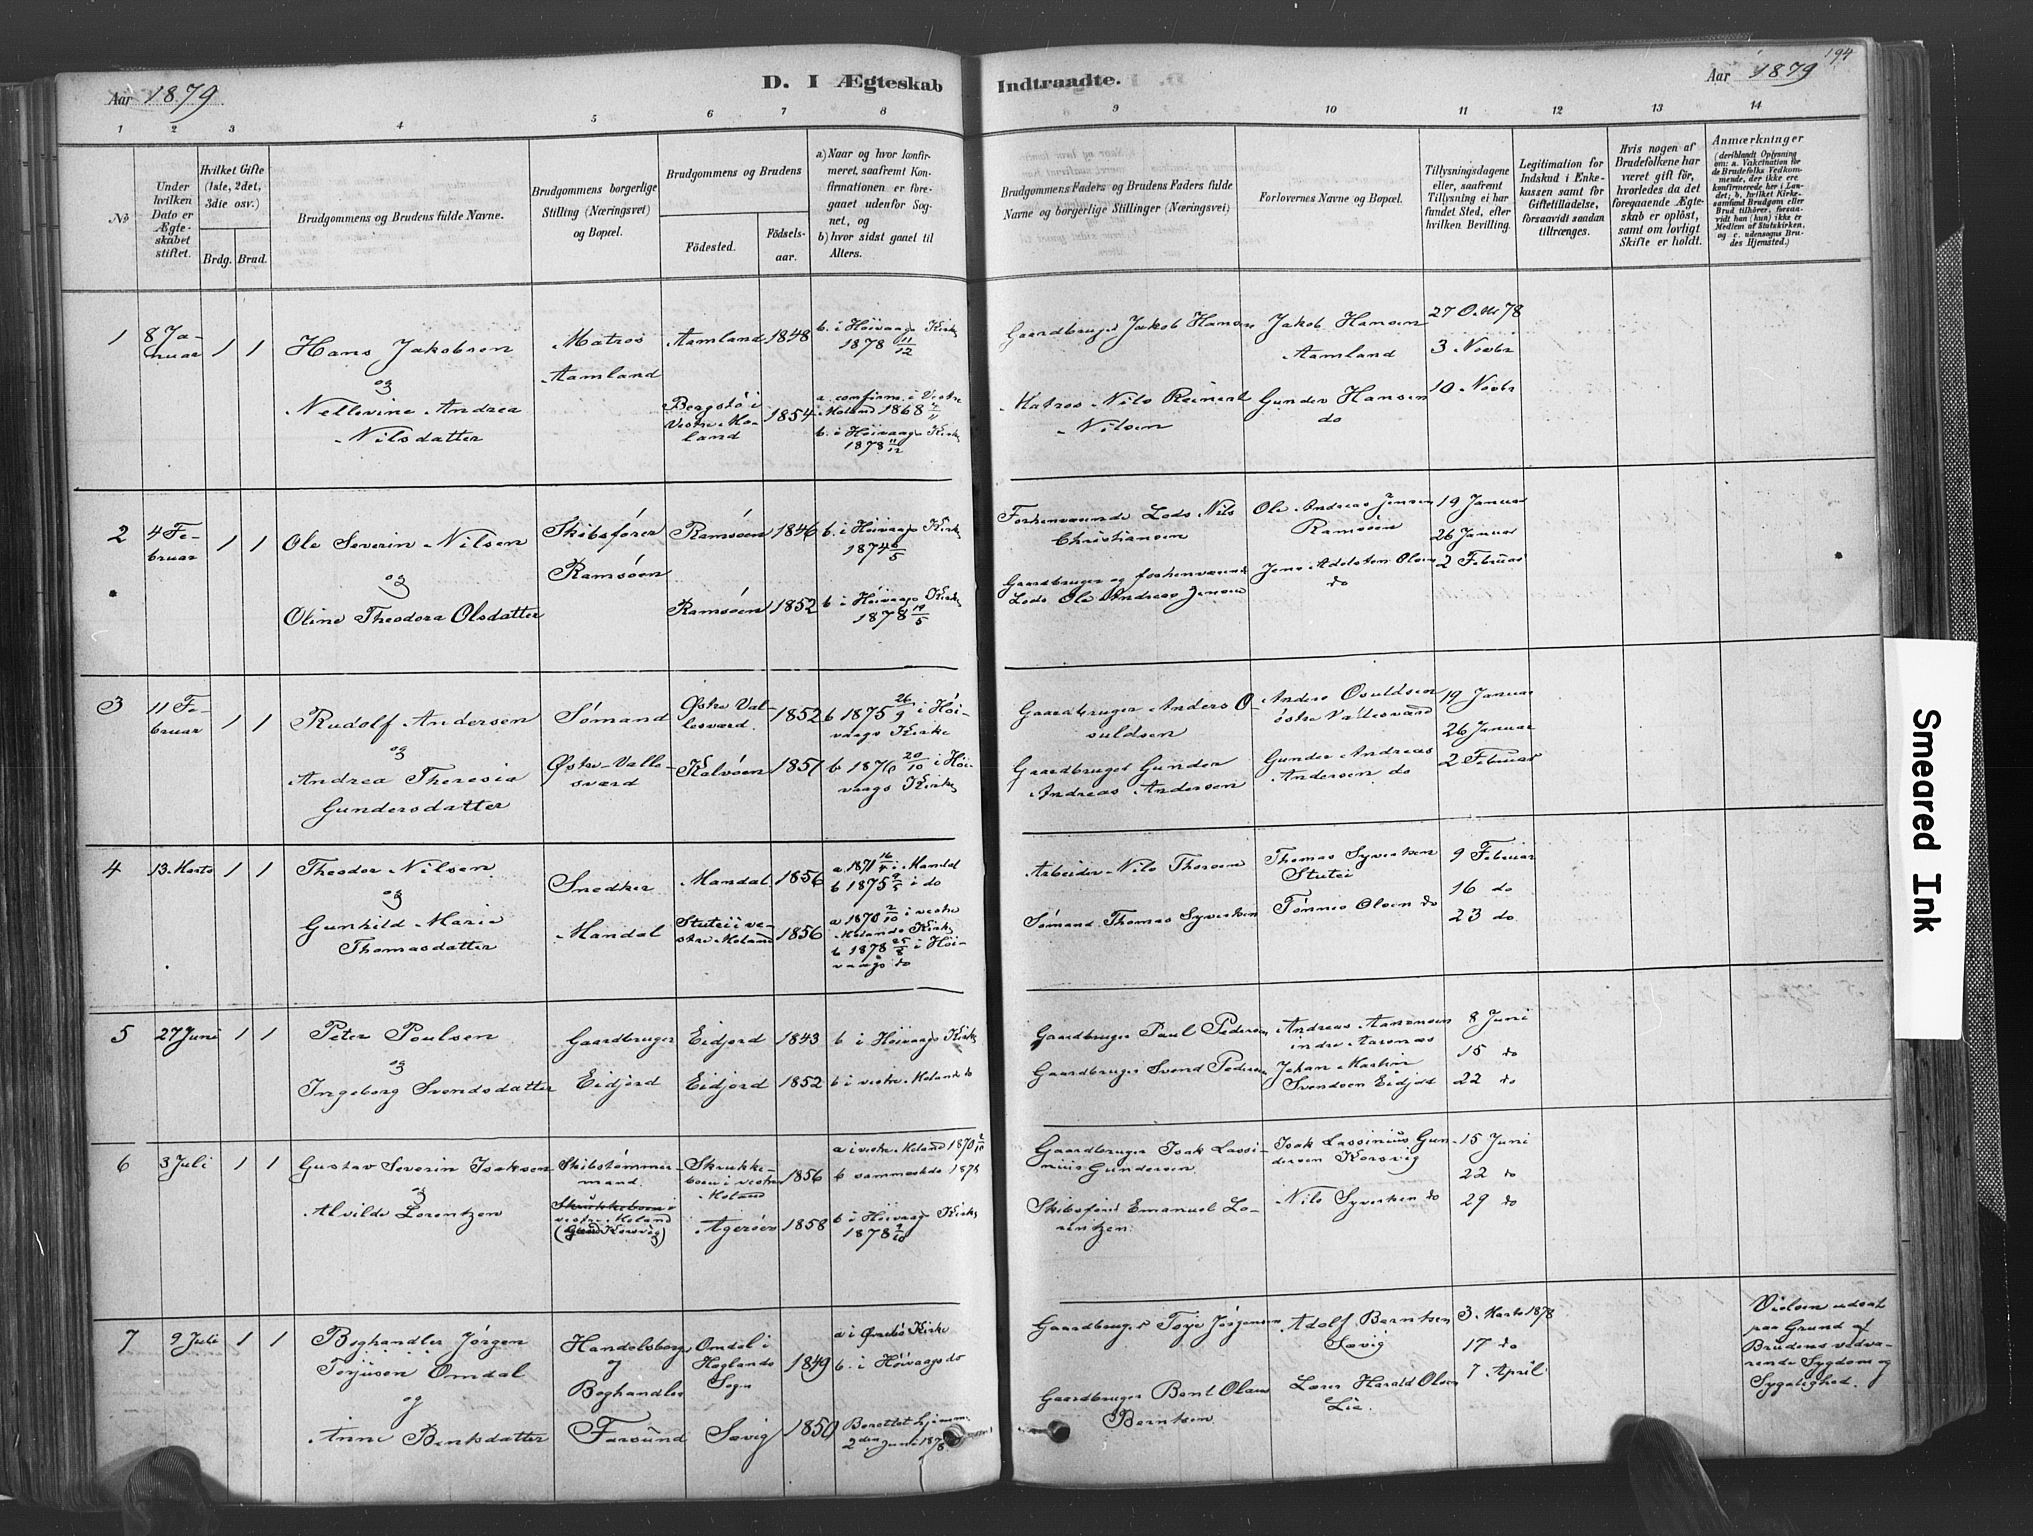 194
Aar 1879
D. I Ægteskab
Indtraadte.
Aar 1879
1 2 3 4 5 6 7 8
9 10 11 12 13 14
No
Under
hvilken
Dato er
Ægte-
skabet
stiftet.
Hvilket Gifte
(1ste, 2det,
3die osv.)
Brdg. Brud.
Brudgommens og Brudens fulde Navne.
Brudgommens borgerlige
Stilling (Næringsvei)
og Bopæl.
Brudgommens og Brudens
Födested.
Födsels-
aar.
a) Naar og hvor konfir-
meret, saafremt Kon-
firmationen er fore-
gaaet udenfor Sog-
net, og
b) hvor sidst gaaet til
Alters.
Brudgommens Faders og Brudens Faders fulde
Navne og borgerlige Stillinger (Næringsvei)
Forlovernes Navne og Bopæl.
Tillysningsdagene
eller, saafremt
Tillysning ei har
fundet Sted, efter
hvilken Bevilling.
Legitimation for
Indskud i Enke-
kassen samt for
Giftetilladelse,
forsaavidt saadan
tiltrænges.
Hvis nogen af
Brudefolkene har
været gift för,
hvorledes da det
foregaaende Ægte-
skab er oplöst,
samt om lovligt
Skifte er holdt.
Anmærkninger
(deriblandt Oplysning
om: a. Vakcination for
de Brudefolks Vedkom-
mende, der ikke ere
konfirmerede her i Lan-
det; b. hvilket Kirke-
samfund Brudgom eller
Brud tilhörer, forsaa-
vidt han (hun) ikke er
Medlem af Statskirken,
og c. udensogns Bru-
des Hjemsted.)
1
8 Ja-
nuar
1 1
Hans Jakobsen
og
Nellevine Andrea
Nilsdatter
Matros
Aamland
Aamland 1848
Bergstø i
Vestre Mo-
land
1854
b. i Høivaags Kirke
1878 11/12
a. comfirm. i Vestre
Moland 1868
b. i Høivaags Kirke
1878 11/12
Gaardbruger Jakob Hansen
Matros Nils Reinert
Nilsen
Jakob Hansen
Aamland
Gunder Hansen
do
27 Octbr 78
3 Novbr
10 Novbr
2
4 Fe-
bruar
1 1
Ole Severin Nilsen
og
Oline Theodora Olsdatter
Skibsfører
Ramsøen
Ramsøen 1846
Ramsøen 1852
b. i Høivaags Kirke
1874 6/5
b i Høivaags Kirke
1878 19/5
Forhenværende Lods Nils
Christiansen
Gaardbruger og forhenværende
Lods Ole Andreas Jensen
Ole Andreas Jensen
Ramsøen
Jens Adolsten Olsen
do
19 Januar
26 Januar
2 Februar
3
11 Fe-
bruar
1 1
Rudolf Andersen
og
Andrea Theresia
Gundersdatter
Sømand
Østre Valle-
sværd
Østre Val-
lesværd
1852
Kalvøen 1857
b 1875 26/9 i Høi-
vaags Kirke
b 1876 20/10 i Høi-
vaags Kirke
Gaardbruger Anders O-
suldsen
Gaardbruger Gunder
Andreas Andersen
Anders Osuldsen
østre Valdesværd
Gunder Andreas
Andersen do
19 Januar
26 Januar
2 Februar
4
13 Marts
1 1
Theodor Nilsen
og
Gunhild Marie
Thomasdatter
Snedker
Mandal
Mandal 1856
Stutei i ve-
stre Moland
1856
a 1871 16/4 i Mandal
b 1875 9/5 i do
a 1870 2/10 i vestre
Molands Kirke
b 1878 25/8 i Høi-
vaags do
Arbeider Nils Thorsen
Sømand Thomas Syvertsen
Thomas Syvertsen
Stutei
Tønnes Olsen do
9 Februar
16 do
23 do
5
27 Juni
1 1
Peter Poulsen
og
Ingeborg Svendsdatter
Gaardbruger
Eidjord
Eidjord 1843
Eidjord 1852
b i Høivaags Kirke
b i vestre Molands
Gaardbruger Paul Pedersen
Gaardbruger Svend Pedersen
Andreas Aanonsen
indre Aarsnæs
Johan Martin
Svendsen Eidjord
8 Juni
15 do
22 do
6
3 Juli
1 1
Gustav Severin Isaksen
og
Alvilde Lorentzen
Skibstømmer-
mand.
Skrukkeboen i
vestre Moland
Skrukke-
boen i vestre
Moland
1856
Agerøen 1858
a i vestre Moland 1870 2/10
b sammesteds 1878
b i Høivaags Kirke
1878
Gaardbruger Isak Lassi-
nius Gundersen
Skibsfører Emanuel Lo-
rentzen
Isak Lassinius Gun-
dersen Korsvig
Nils Syvertsen do
15 Juni
22 do
29 do
7
9 Juli
1 1
Boghandler Jørgen
Terjusen Omdal
og
Anne Bentsdatter
Handelsborger
og
Boghandler
Farsund
Omdal i
Høglands
Sogn
1849
Sævig 1850
a i Øvrebø Kirke
b. i Høivaags do
Berettet hjemme
2den Juni 1878
Gaardbruger Terje Jørgensen
Gaardbruger Bent Olaus
Berntsen
Adolf Berntsen
Sævig
Lærer Harald Olsen
Lie
3 Marts 1878
17 do
7 April
Vielsen udsat
paa Grund af
Brudens vedva-
rende Sygdom og
Sygelighed.
Smeared Ink